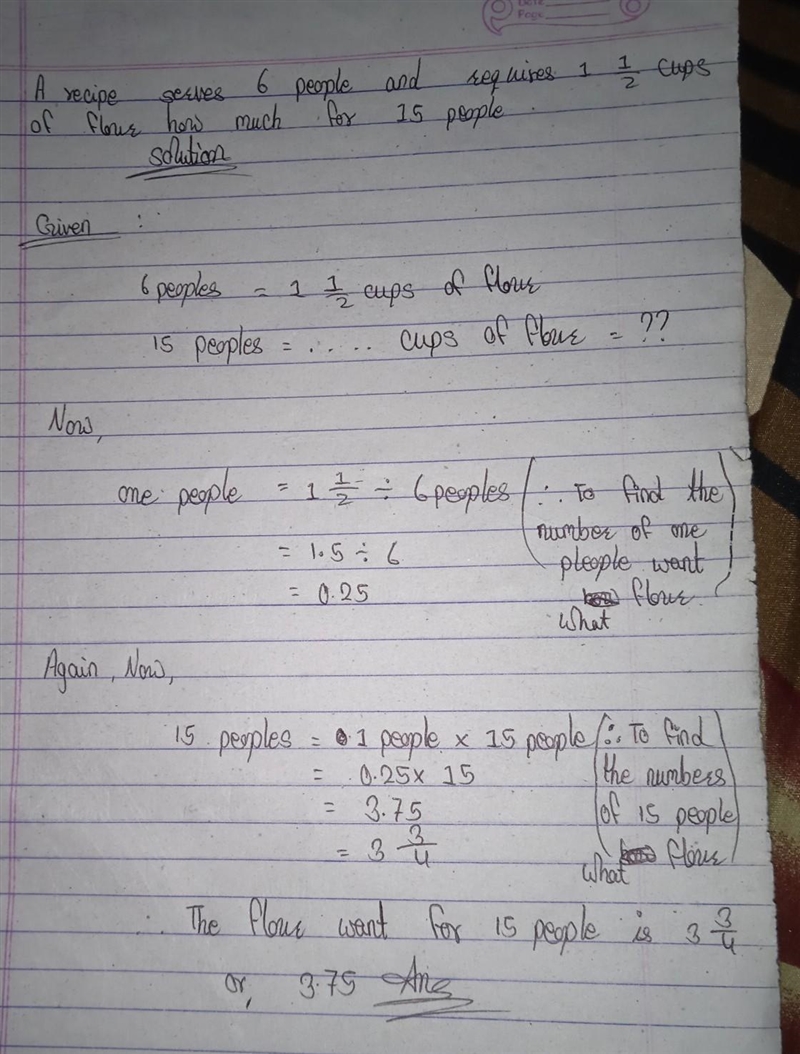 Date
Page
A recipe serves 6 people and requires 1 1/2 cups
of flour how much for 15 people.
Solution
Given :
6 peoples = 1 1/2 cups of flour
15 peoples = ..... cups of flour = ??
Now,
one people = 1 1/2 ÷ 6 peoples (∴ To find the
number of one
pleople want
flour)
what
= 1.5 ÷ 6
= 0.25
Again, Now,
15 peoples = 1 people × 15 people (∴ To find
the numbers
of 15 people
flour)
what
= 0.25 × 15
= 3.75
= 3 3/4
∴ The flour want for 15 people is 3 3/4
or, 3.75 Ans